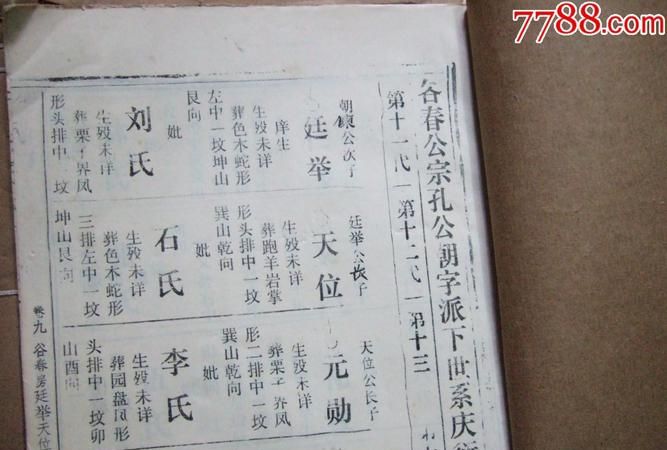 7788.com
谷春公宗孔公朝字派下世系庆
第十一代 第十二代 第十三
朝 公次子
廷举
庠生
生殁未详
葬色木蛇形
左中一坟坤山
艮向
妣
刘氏
生殁未详
葬栗子界凤
形头排中一坟
廷举公长子
天位
生殁未详
葬跑羊岩掌
形头排中一坟
巽山乾向
妣
石氏
生殁未详
葬色木蛇形
三排左中一坟
坤山艮向
天位公长子
元勋
生殁未详
葬栗子界凤
形二排中一坟
巽山乾向
妣
李氏
生殁未详
葬园盘凤形
头排中一坟卯
山酉向
卷九 谷春房廷举天位